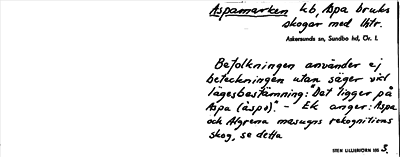 Aspamarken kb, Aspa bruks
skogar med lktr.
Askersunds sn, Sundbo hd, Ör. l.
Befolkningen använder ej
beteckningen utan säger vid
lägesbestämning: "Det ligger på
Aspa (àspa)". – Ek anger: Aspa
och Algrena masugns rekognitions
skog, se detta
STEN LILLIEHÖÖK 195 3.